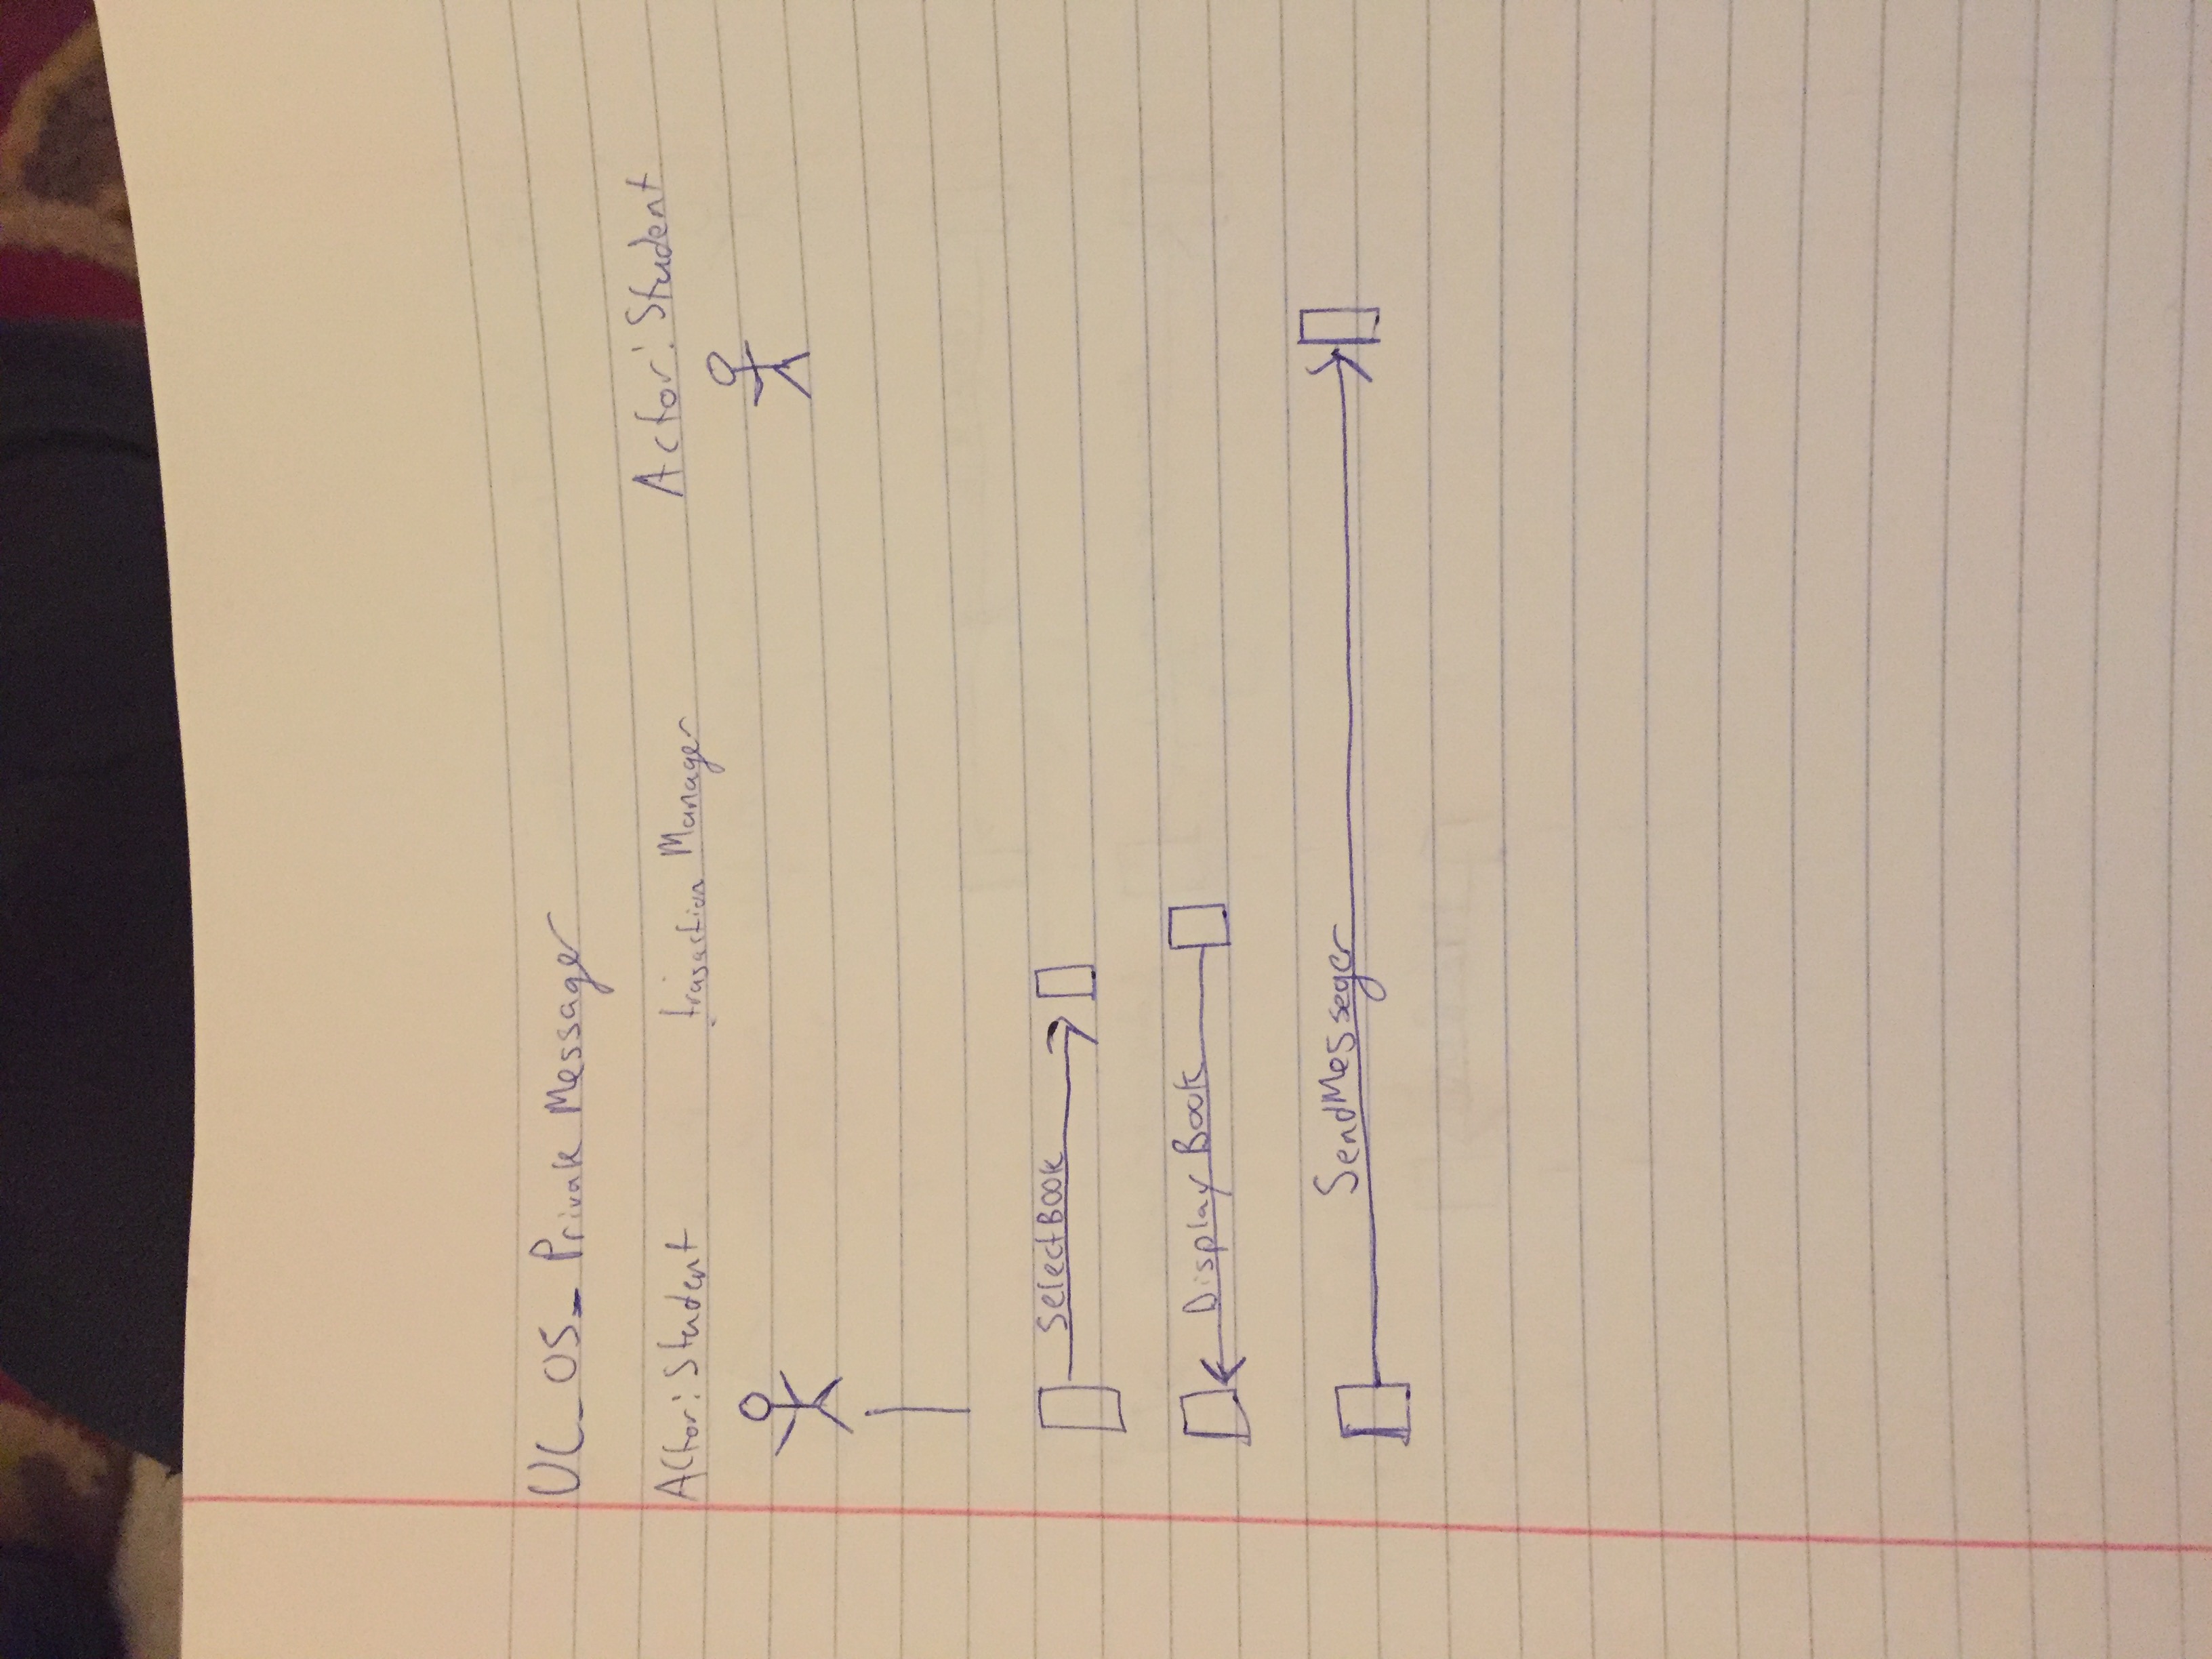 UC_05_ Private Messager
Actor: Student trasaction Manager Actor: Student
SelectBook
Display Book
SendMesseger